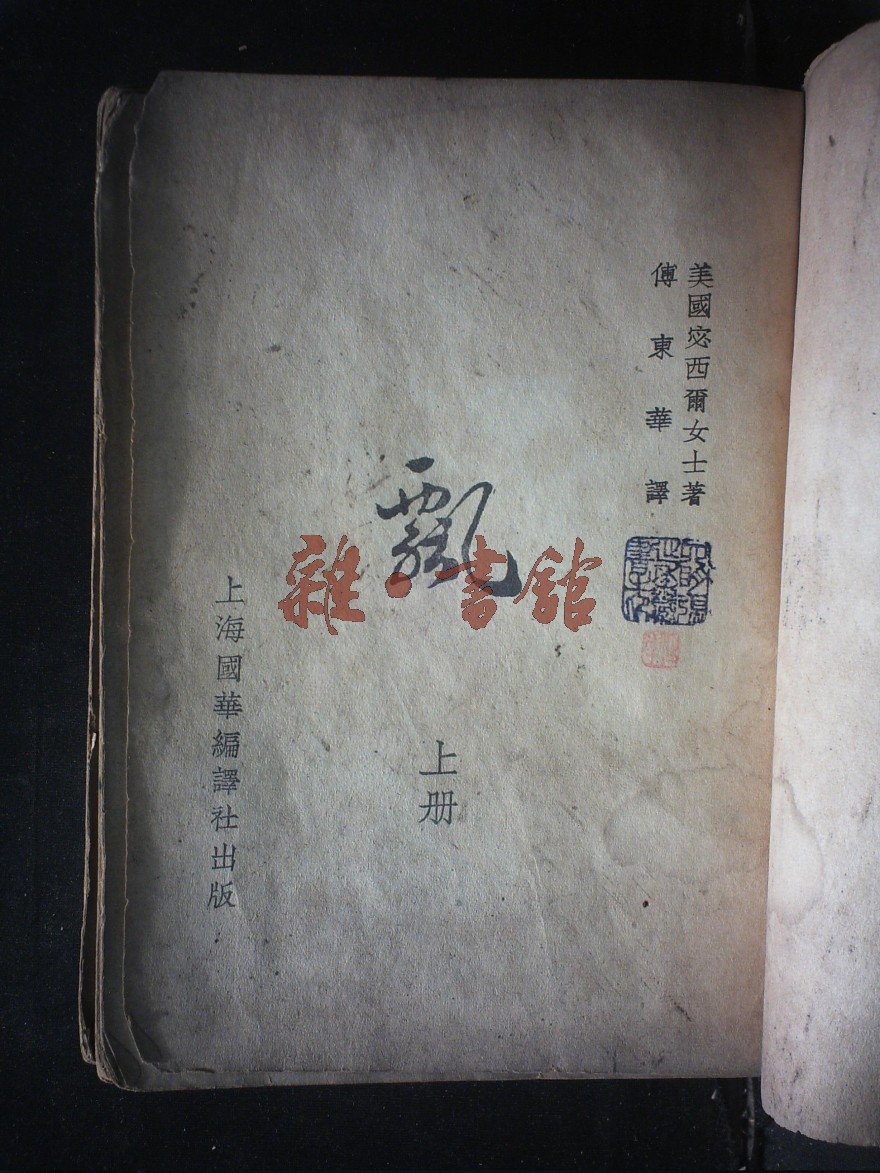 美國宓西爾女士著
傅東華譯
飄
上册
上海國華編譯社出版
雜·書館